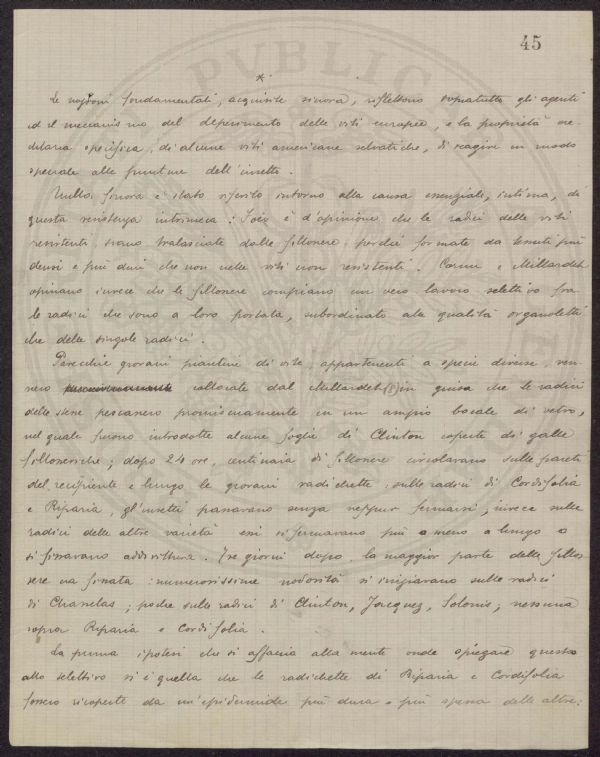 45
PVBLIC
*
Le nozioni fondamentali, acquisite sinora, riflettono sopratutto gli agenti
ed il meccanismo del deperimento delle viti europee, e la proprietà ere-
ditaria specifica, di alcune viti americane selvatiche, di reagire in modo
speciale alle punture dell'insetto.
Nulla finora è stato riferito intorno alla causa essenziale, intima, di
questa resistenza intrinseca: Foëx è d'opinione che le radici delle viti
resistenti siano tralasciate dalle fillossere, perchè formate da tessuti più
densi e più duri che non nelle viti non resistenti. Cornu e Millardet
opinano invece che le fillossere compiano un vero lavoro selettivo fra
le radici che sono a loro portata, subordinato alle qualità organoletti
che delle singole radici.
Parecchie giovani piantine di vite, appartenenti a specie diverse, ven-
nero collocate dal Millardet (1) in guisa che le radici
delle stesse pescassero promiscuamente in un ampio bocale di vetro,
nel quale furono introdotte alcune foglie di Clinton coperte di galle
fillosseriche; dopo 24 ore, centinaia di fillossere circolavano sulle pareti
del recipiente e lungo le giovani radichette: sulle radici di Cordifolia
e Riparia, gl'insetti passavano senza neppur fermarsi; invece sulle
radici delle altre varietà essi si fermavano più o meno a lungo o
si fissavano addirittura. Tre giorni dopo, la maggior parte delle fillos
sere era fissata: numerosissime nodosità si iniziavano sulle radici
di Chasselas; poche sulle radici di Clinton, Jacquez, Solonis; nessuna
sopra Riparia e Cordifolia.
La prima ipotesi che si affaccia alla mente onde spiegare questo
atto selettivo si è quella che le radichette di Riparia e Cordifolia
fossero ricoperte da un'epidermide più dura e più spessa delle altre: